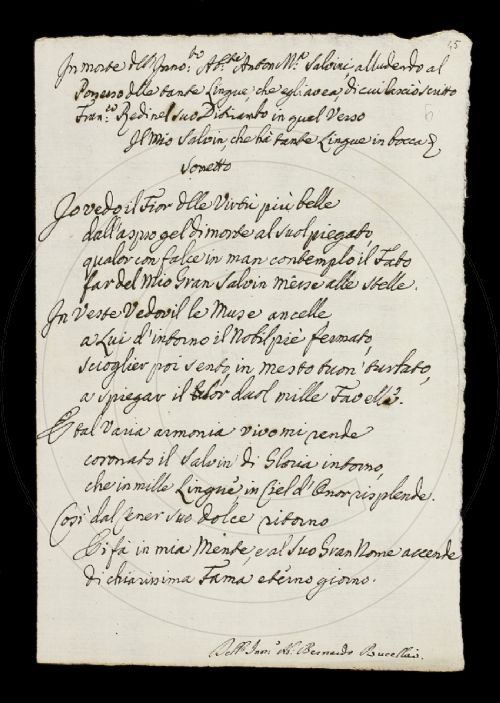 45
In morte dell' Innō: to Ab: te Anton M.a Salvini, alludendo al
Possesso delle tante Lingue, che egli avea, di cui lasciò scritto
Fran.co Redi nel suo Ditirambo in quel Verso
Il mio Salvin, che hà tante Lingue in bocca
Sonetto
Io vedo il Fior delle Virtù più belle
dall'aspro gel di morte al suol piegato,
qualor con falce in man contemplo il Fato
far del Mio Gran Salvin messe alle stelle.
In Veste Vedovil le Muse ancelle
a Lui d'intorno il Nobil piè fermato,
scioglier poi sento, in mesto suon' turbato,
a spiegar il lor duol mille Favelle.
E tal varia armonia vivo mi rende
coronato il Salvin di Gloria intorno,
che in mille Lingue in Ciel d'Onor risplende.
Così dal Cener suo dolce ritorno
Ei fà in mia Mente, e al Suo Gran Nome accende
di chiarissima Fama eterno giorno.
Dell' Ab. Bernardo Bucellai.